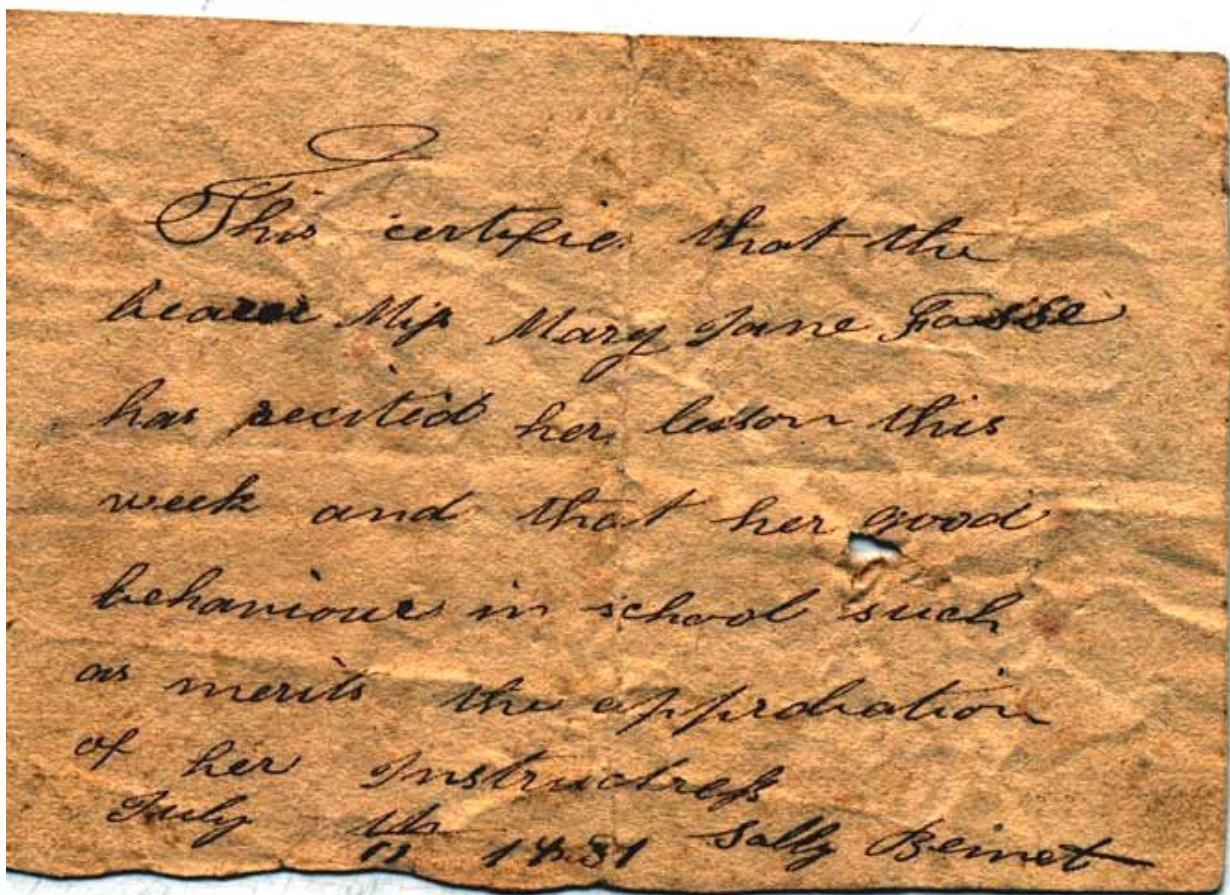 This certifie that the
bearer Miss Mary Jane Fosse
has recited her lesson this
week and that her good
behaviour in school such
as merits the approbation
of her Instructress
July 11th Sally Bennet